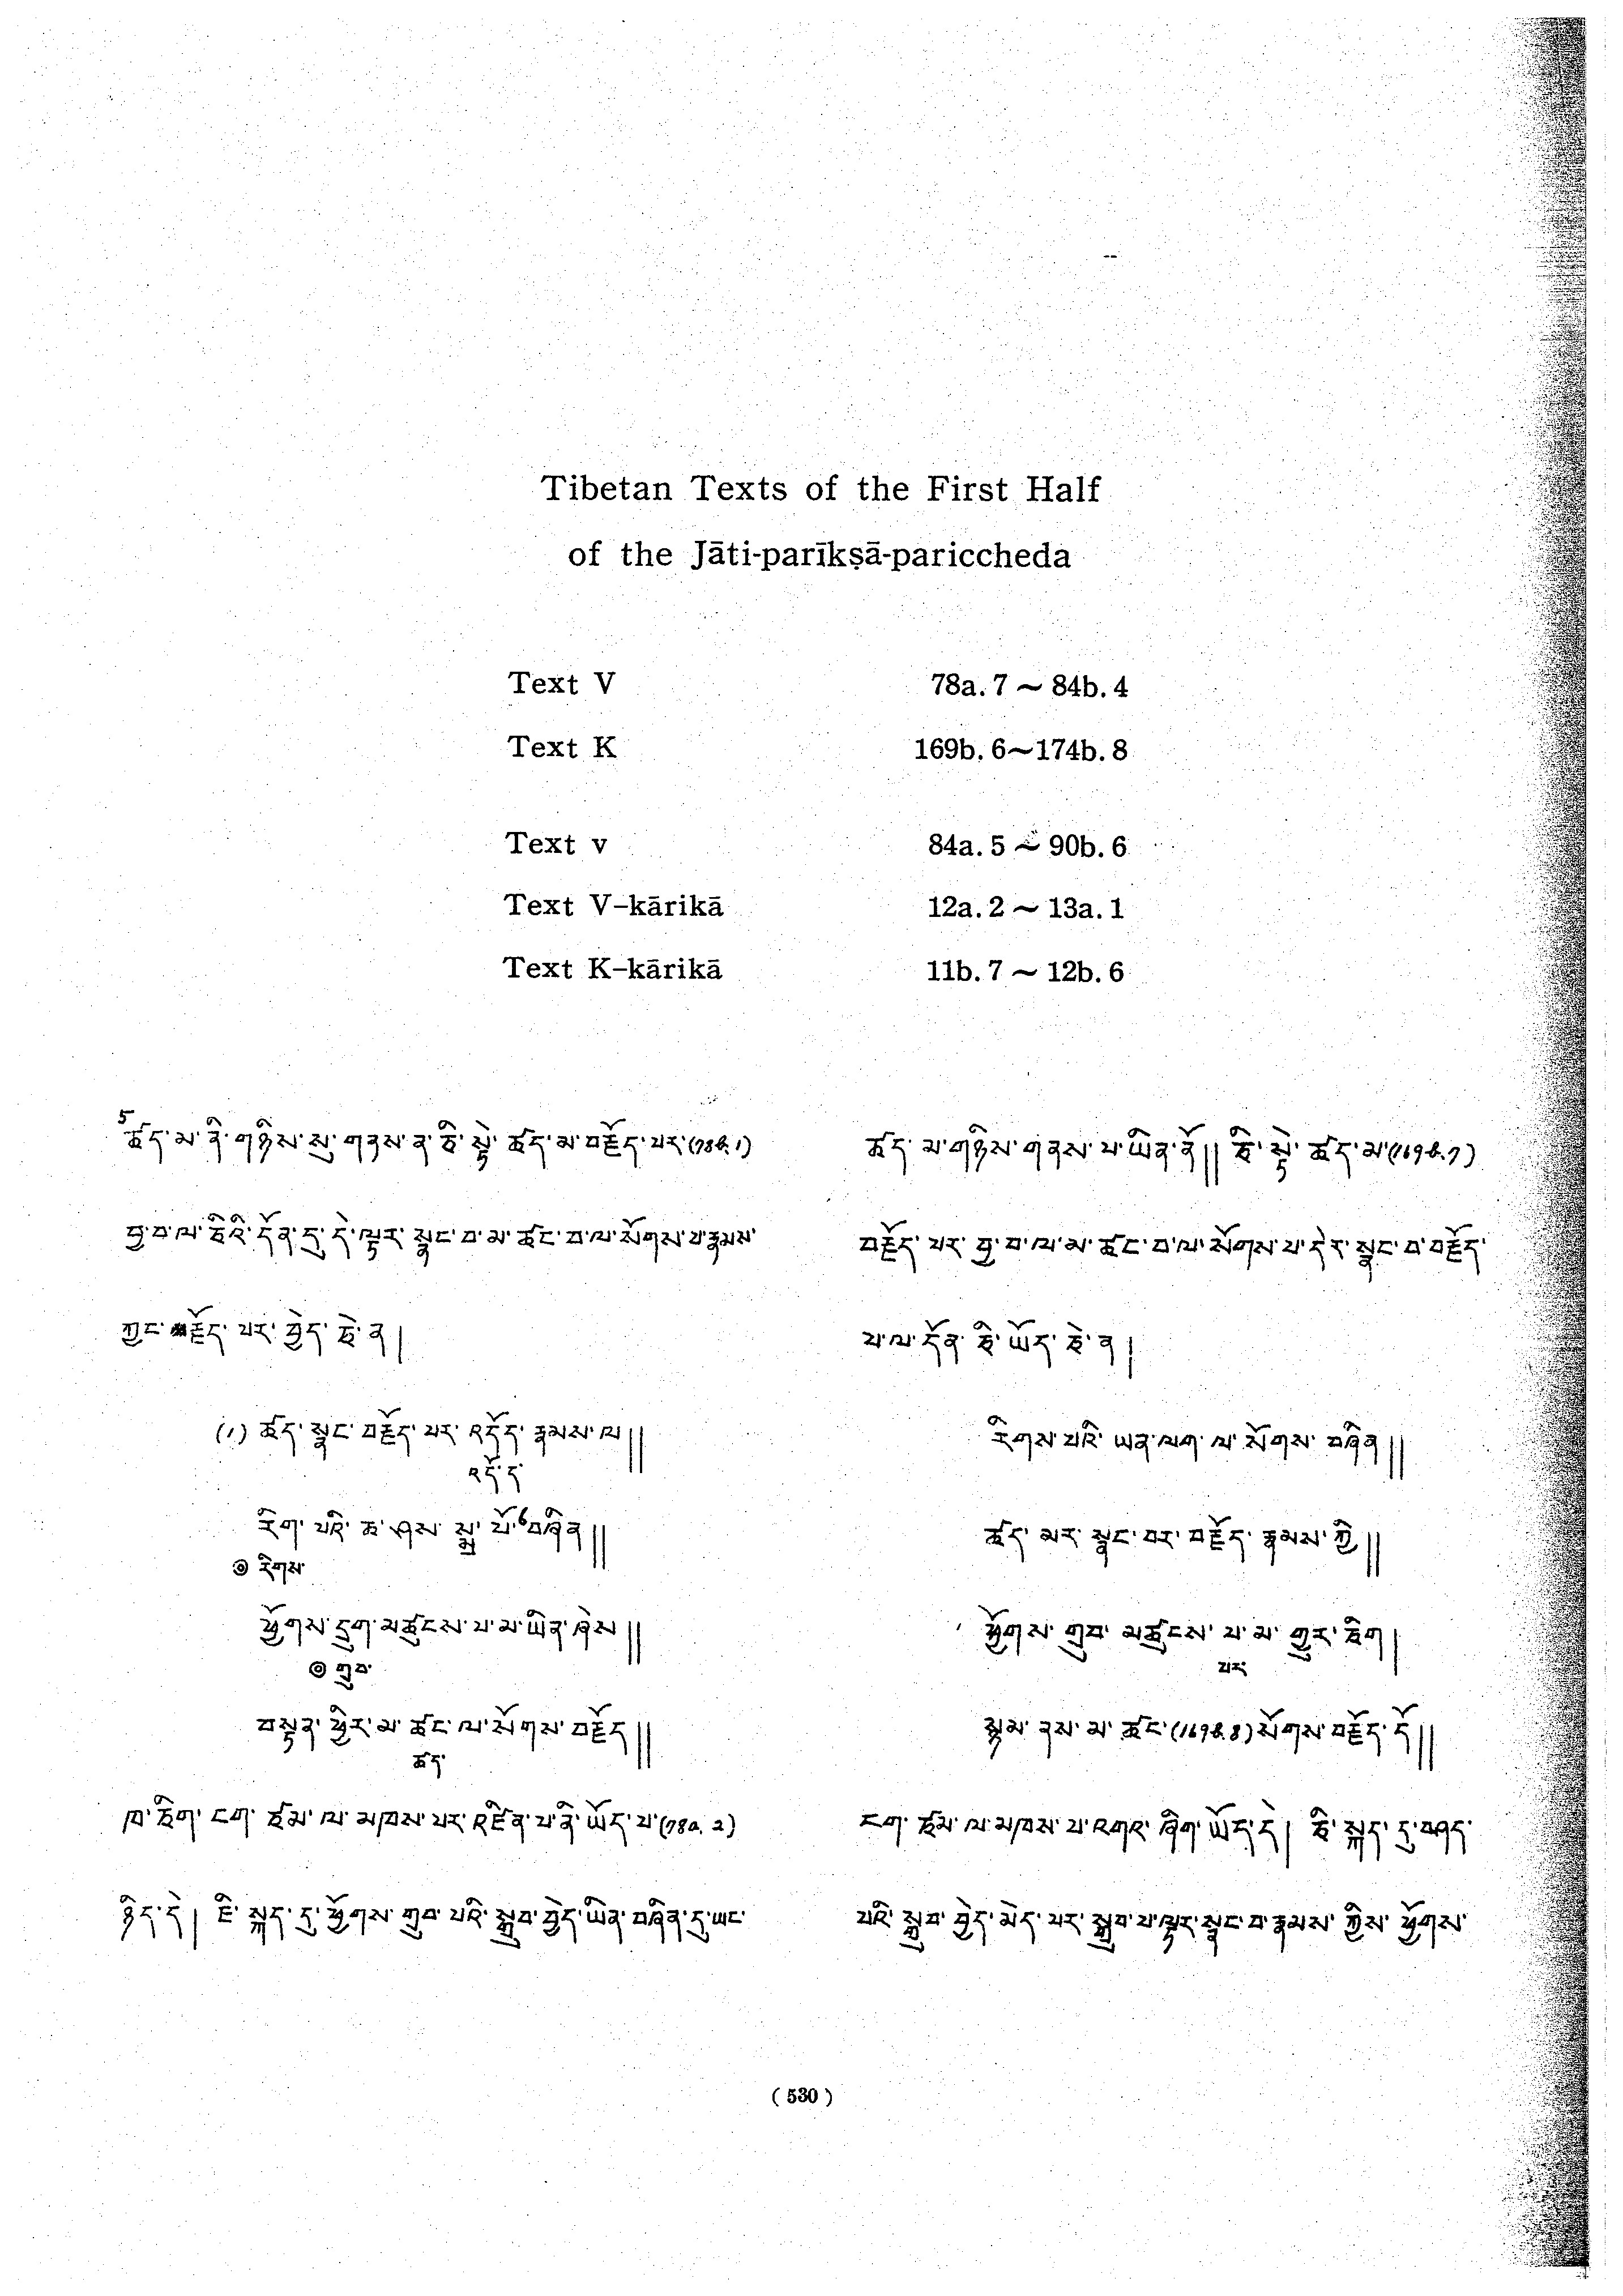 Tibetan Texts of the First Half
of the Jāti-parīkṣā-pariccheda
Text V 78a. 7 ~ 84b. 4
Text K 169b. 6~174b. 8
Text v 84a. 5 ~ 90b. 6
Text V-kārikā 12a. 2 ~ 13a. 1
Text K-kārikā 11b. 7 ~ 12b. 6
5
ཚད་མ་ནི་གཉིས་སུ་གནས་ན་ཅི་སྟེ་ཚད་མ་བརྗོད་པར་(78b.1)
བྱ་བ་ལ་ཅིའི་དོན་དུ་དེ་ལྟར་སྣང་བ་མ་ཚང་བ་ལ་སོགས་པ་རྣམས་
ཀྱང་བརྗོད་པར་བྱེད་ཅེ་ན།
(1) ཚད་སྣང་བརྗོད་པར་འདོད་རྣམས་ལ༎
འདོད་
རིག་པའི་ཆ་ཤས་སྨྲ་པོ་6བཞིན༎
◎ རིགས་
ཕྱོགས་དྲུག་མཚུངས་པ་མ་ཡིན་ཞེས༎
◎ གྲུབ་
བསྟན་ཕྱིར་མ་ཚང་ལ་སོགས་བརྗོད༎
ཚད་
ཁ་ཅིག་ངག་ཙམ་ལ་མཁས་པར་འཛིན་པ་ནི་ཡོད་པ་(78b.2)
ཉིད་དེ། ཇི་སྐད་དུ་ཕྱོགས་གྲུབ་པའི་སྒྲུབ་བྱེད་ཡིན་བཞིན་དུ་ཡང་
ཚད་མ་གཉིས་གནས་པ་ཡིན་ནོ༎ ཅི་སྟེ་ཚད་མ་(169b.7)
བརྗོད་པར་བྱ་བ་ལ་མ་ཚང་བ་ལ་སོགས་པ་དེར་སྣང་བ་བརྗོད་
པ་ལ་དོན་ཅི་ཡོད་ཅེ་ན།
རིགས་པའི་ཡན་ལག་ལ་སོགས་བཞིན༎
ཚད་མར་སྣང་བར་བརྗོད་རྣམས་ཀྱི༎
ཕྱོགས་གྲུབ་མཚུངས་པ་མ་གྱུར་ཅིག།
པར་
སྙམ་ནས་མ་ཚང་(169b.8)སོགས་བརྗོད་དོ༎
ངག་ཙམ་ལ་མཁས་པ་འགའ་ཞིག་ཡོད་དེ། ཅི་སྐད་དུ་བཤད་
པའི་སྒྲུབ་བྱེད་མེད་པར་སྒྲུབ་པ་ལྟར་སྣང་བ་རྣམས་ཀྱིས་ཕྱོགས་
( 530 )